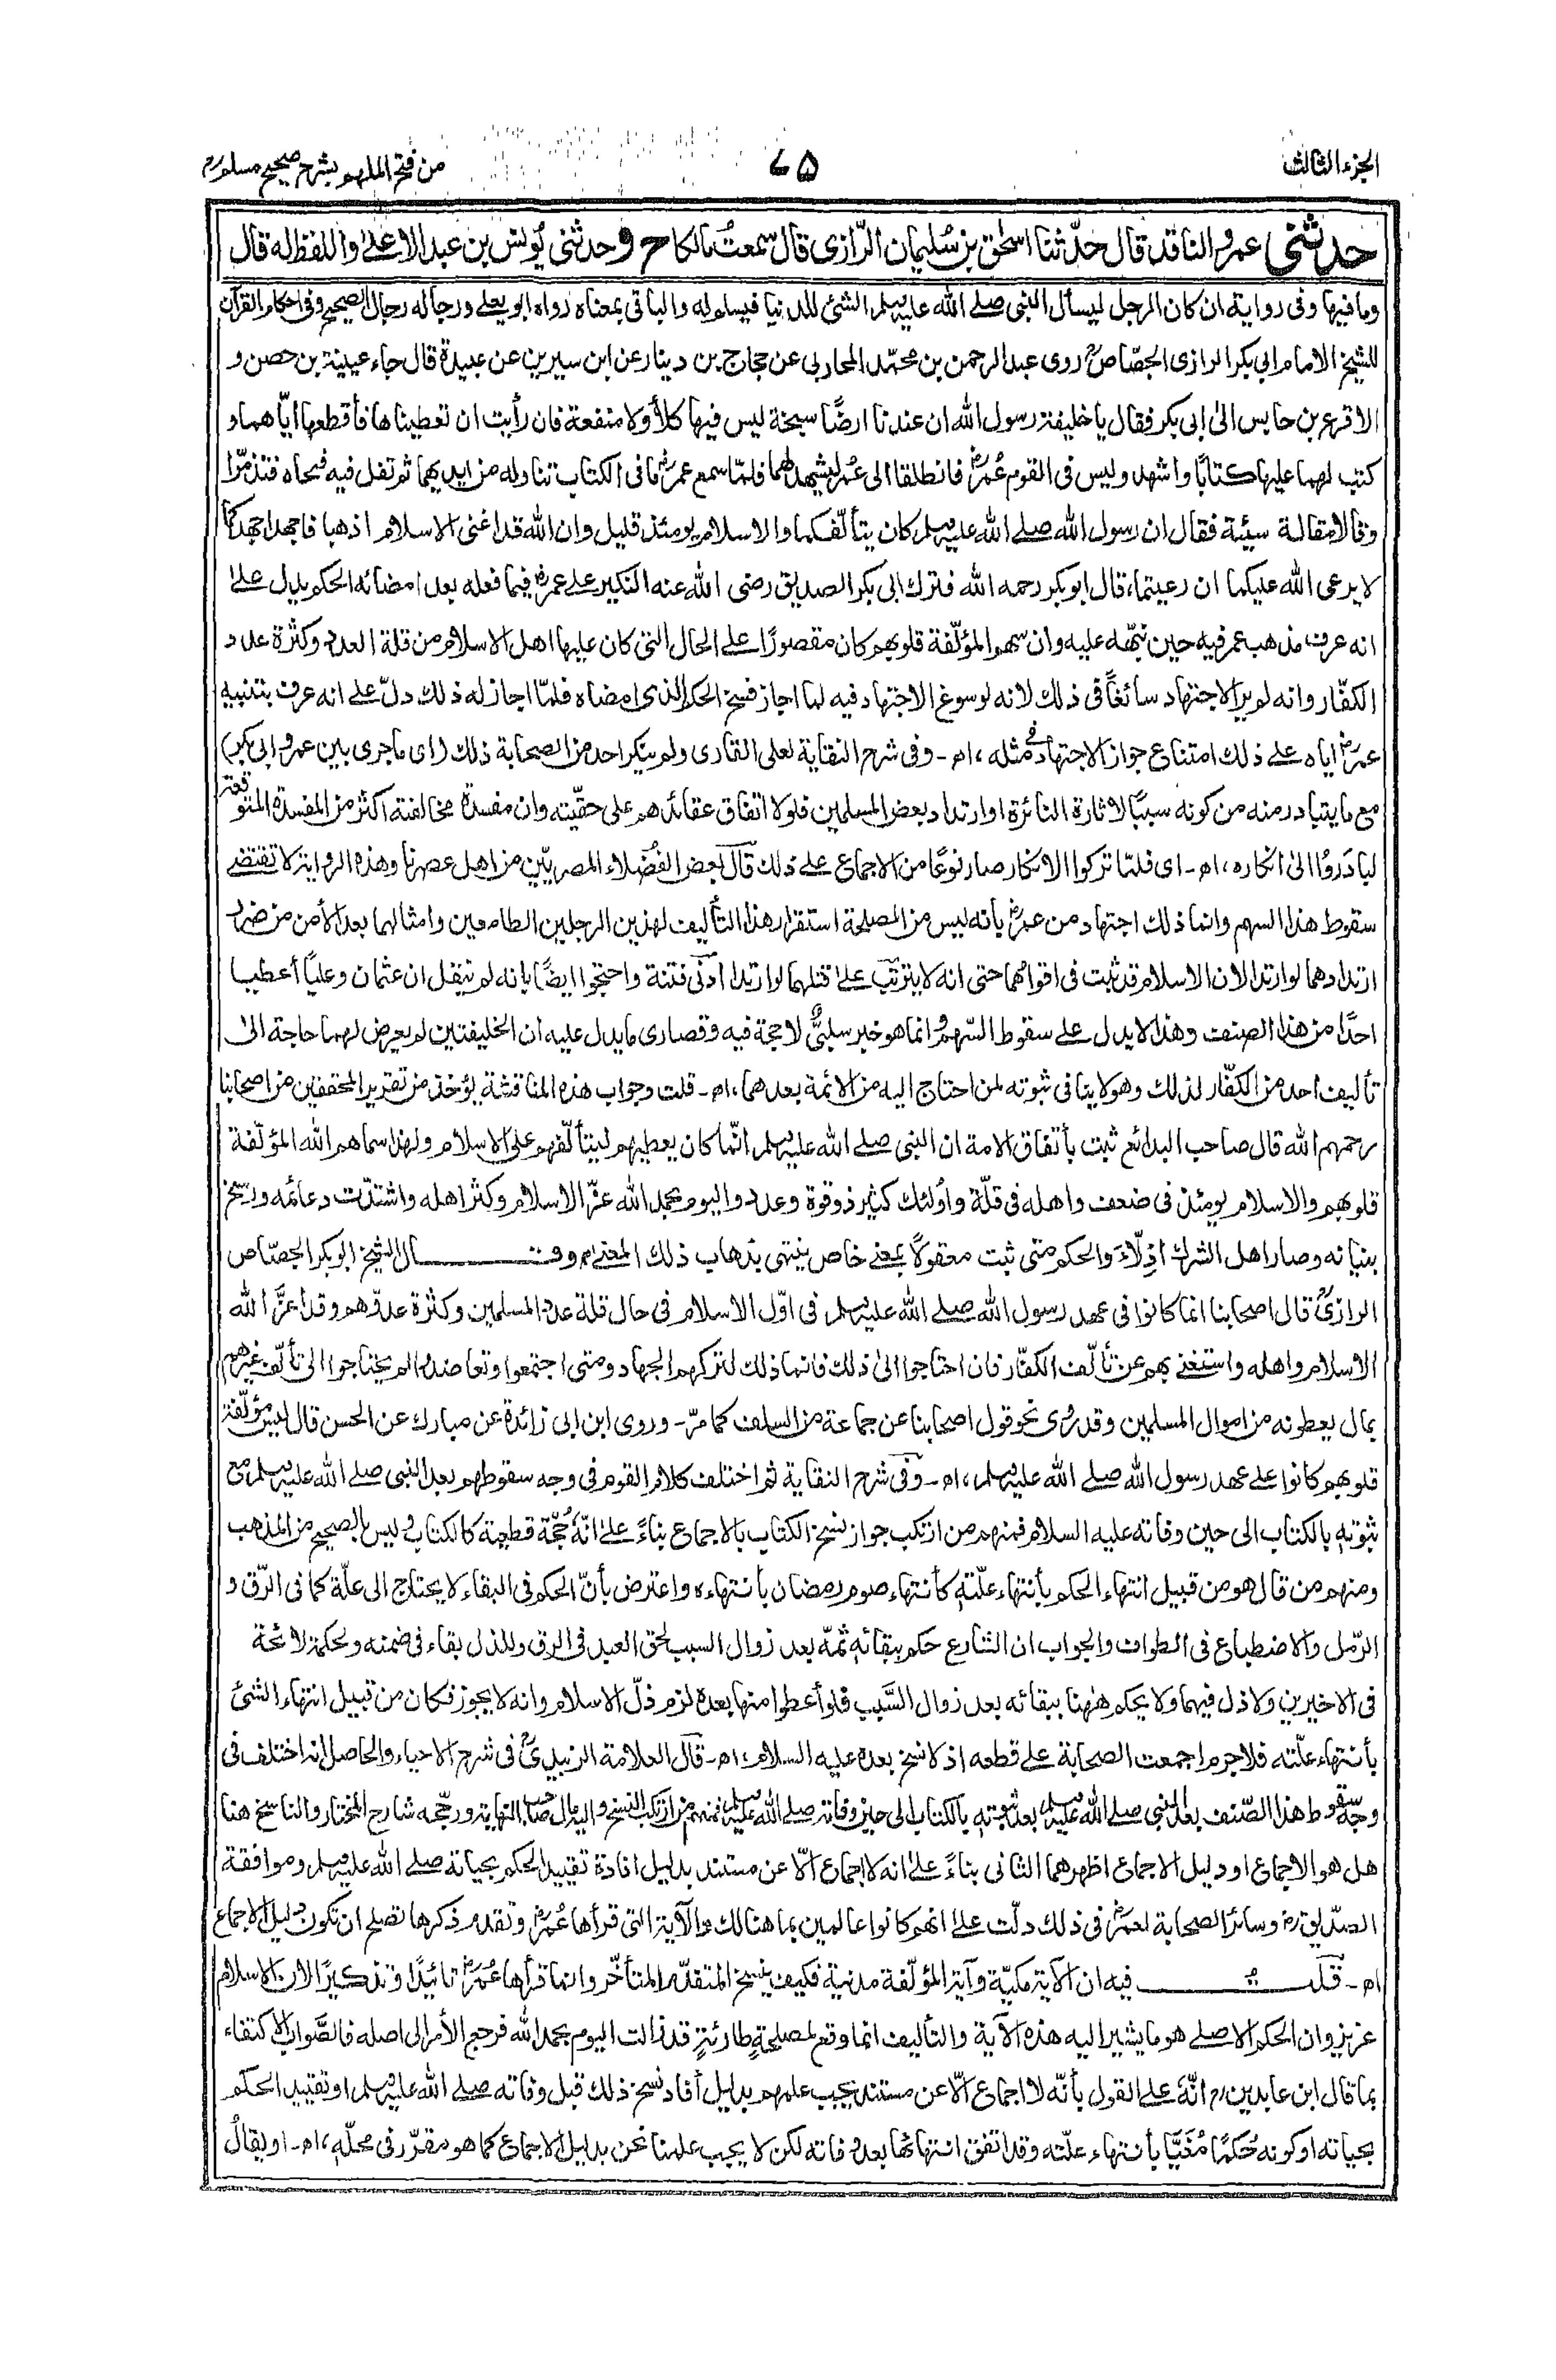 الجزء الثالث
٧٥
من فتح الملهم بشرح صحيح مسلم
حدثنى عمرو الناقد قال حدّثنا اسحٰق بن سُليمان الرّازى قال سمعتُ مالكا ح وحدثنى يُونس بن عبد الاعلىٰ واللفظ له قال
وما فيها وفى رواية ان كان الرجل ليسأل النبى صلے الله عليه وسلم الشئ للدنيا فيسلم له والباقى بمعناه رواه ابو يعلے ورجاله رجال الصحيح وفى احكام القرآن
للشيخ الامام ابى بكر الرازى الجصّاص روى عبد الرحمن بن محمّد المحاربى عن حجاج بن دينار عن ابن سيرين عن عبيدة قال جاء عيينة بن حصن و
الاقرع بن حابس الىٰ ابى بكر فقال يا خليفة رسول الله ان عندنا ارضًا سبخة ليس فيها كلأ ولا منفعة فان رأيت ان تعطيناها فأقطعها ايّاهما و
كتب لهما عليها كتابًا واشهد وليس فى القوم عُمر فانطلقا الى عُمر ليشهد لهما فلمّا سمع عمر ما فى الكتاب تناوله من ايديهما ثم تفل فيه فمحاه فتذمّرا
وقالا مقالة سيئة فقال ان رسول الله صلے الله عليه وسلم كان يتألّفكما والاسلام يومئذ قليل وان الله قد اغنى الاسلام اذهبا فاجهدا جهدكما
لا يرعى الله عليكما ان رعيتما، قال ابو بكر رحمه الله فترك ابى بكر الصديق رضى الله عنه النكير علے عمر فيما فعله بعد امضائه الحكم يدل علےٰ
انه عرف مذهب عمر فيه حين نبّهه عليه وان سهم المؤلّفة قلوبهم كان مقصورًا علے الحال التى كان عليها اهل الاسلام من قلة العدد وكثرة عدد
الكفّار وانه لم ير الاجتهاد سائغًا فى ذلك لانه لو سوغ الاجتهاد فيه لما اجاز فسخ الحكم الذى امضاه فلمّا اجاز له ذلك دلّ علے انه عرف بتنبيه
عمر اياه علے ذلك امتناع جواز الاجتهاد فى مثله ، اھ - وفى شرح النقاية لعلى القارى ولم ينكر احد من الصحابة ذلك (اى ما جرى بين عمر وابى بكر)
مع ما يتبادر منه من كونه سببًا لاثارة النائرة او ارتداد بعض المسلمين فلولا اتفاق عقائدهم على حقّيته وان مفسدة مخالفته اكثر من المفسدة المتوقعة
لبادَروُا الىٰ انكاره ، اھ - اى فلمّا تركوا الانكار صار نوعًا من الاجماع علے ذلك قال بعض الفُضلاء المصريّين من اهل عصرنا وهذه الرواية لا تقتضے
سقوط هذا السهم وانما ذلك اجتهاد من عمر بانه ليس من المصلحة استقرار هذا التأليف لهذين الرجلين الطامعين وامثالهما بعد الأمن من ضرر
ارتدادهما لو ارتدا لان الاسلام قد ثبت فى اقوامهما حتى انه لا يترتّب علےٰ قتلهما لو ارتدا أدنى فتنة واحتجوا ايضًا بانه لم ينقل ان عثمان وعليًا أعطيا
احدًا من هذا الصنف وهذا لا يدل علے سقوط السّهم وانما هو خبر سلبىٌّ لا حجة فيه وقصارى ما يدل عليه ان الخليفتين لم يعرض لهما حاجة الىٰ
تأليف احد من الكفّار لذلك وهو لا ينافى ثبوته لمن احتاج اليه من الائمة بعدهما ، اھ - قلت وجواب هذه المناقشة يؤخذ من تقرير المحققين من اصحابنا
رحمهم الله قال صاحب البدائع ثبت بأتفاق الامة ان النبى صلے الله عليه وسلم انّما كان يعطيهم ليتألّفهم على الاسلام ولهذا سماهم الله المؤلّفة
قلوبهم والاسلام يومئذ فى ضعف واهله فى قلّة وأولئك كثير ذو قوة وعدد واليوم بحمد الله عزّ الاسلام وكثر اهله واشتدّت دعائمه ورسخ
بنيانه وصار اهل الشرك اذِلّاءَ والحكم متى ثبت معقولًا بمعنے خاص ينتهى بذهاب ذلك المعنے اھ وقال الشيخ ابو بكر الجصّاص
الرازى قال اصحابنا انما كانوا فى عهد رسول الله صلے الله عليه وسلم فى اوّل الاسلام فى حال قلة عدد المسلمين وكثرة عدوّهم وقد اعزَّ الله
الاسلام واهله واستغنے بهم عن تألّف الكفّار فان احتاجوا الىٰ ذلك فانما ذلك لتركهم الجهاد ومتى اجتمعوا وتعاضدوا لم يحتاجوا الى تألّف غيرهم
بمال يعطونه من اموال المسلمين وقد رُوى نحو قول اصحابنا عن جماعة من السلف كما مرّ - وروى ابن ابى زائدة عن مبارك عن الحسن قال ليس مؤلّفة
قلوبهم كانوا على عهد رسول الله صلے الله عليه وسلم ، اھ - وفى شرح النقاية ثم اختلف كلام القوم فى وجه سقوطهم بعد النبى صلے الله عليه وسلم مع
ثبوته بالكتاب الى حين وفاته عليه السلام فمنهم من ارتكب جواز نسخ الكتاب بالاجماع بناءً علےٰ انّهٗ حُجّة قطعية كالكتاب وليس بالصحيح من المذهب
ومنهم من قال هو من قبيل انتهاء الحكم بأنتهاء علّته كأنتهاء صوم رمضان بأنتهاءه واعترض بأنّ الحكم فى البقاء لا يحتاج الى علّة كما فى الرّق و
الرّمل والاضطباع فى الطواف والجواب ان الشارع حكم ببقائه ثمّه بعد زوال السبب لحق العبد فى الرق وللذل بقاء فى ضمنه ولحكمة لائحة
فى الاخيرين ولا ذل فيهما ولا يحكم ههنا ببقائه بعد زوال السَّبب فلو أعطوا منها بعده لزم ذلّ الاسلام وانه لا يجوز فكان من قبيل انتهاء الشئ
بأنتهاء علّته فلا جرم اجمعت الصحابة علے قطعه اذ لا نسخ بعده عليه السلام، اھ - قال العلامة الزبيدى فى شرح الاحياء والحاصل انه اختلف فى
وجه سقوط هذا الصّنف بعد النبى صلے الله عليه وسلم بعد ثبوته بالكتاب الى حين وفاته صلے الله عليه وسلم فمنهم من ارتكب النسخ واليه مال صاحب النهاية ورجّحه شارح المختار والناسخ هنا
هل هو الاجماع او دليل الاجماع اظهرهما الثانى بناءً علےٰ انه لا اجماع الّا عن مستند بدليل افادة تقييد الحكم بحياته صلے الله عليه وسلم وموافقة
الصدّيق وسائر الصحابة لعمر فى ذلك دلّت علےٰ انهم كانوا عالمين بما هنالك والآية التى قرأها عُمر وتقدم ذكرها تصلح ان تكون دليل الاجماع
اھ - قلت فيه ان الآية مكيّة وآية المؤلّفة مدنية فكيف ينسخ المتقدّم المتأخّر وانما قرأها عُمر تائيدًا وتذكيرًا لان الاسلام
عزيز وان الحكم الاصلے هو ما يشير اليه هذه الآية والتأليف انما وقع لمصلحةٍ طارئةٍ قد زالت اليوم بحمد الله فرجع الأمر الى اصله فالصَّواب الاكتفاء
بما قال ابن عابدين انّهٗ علے القول بأنّه لا اجماع الّا عن مستند يجب علمهم بدليل أفاد نسخ ذلك قبل وفاته صلے الله عليه وسلم او تقييد الحكم
بحياته او كونه حُكمًا مُغَيًّا بأنتهاء علّته وقد اتفق انتهائها بعد وفاته لكن لا يجب علمنا نحن بدليل الاجماع كما هو مقرّر فى محلّه ، اھ - او يقالُ